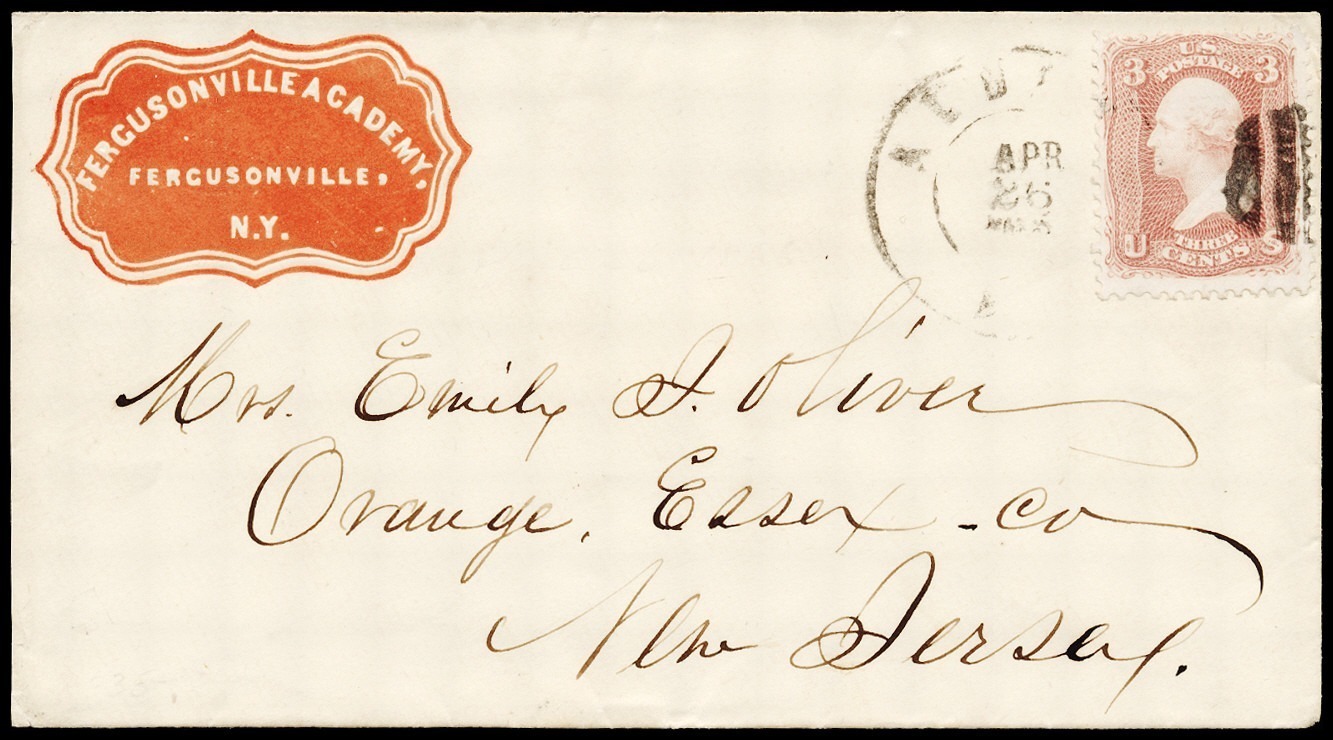 FERGUSONVILLE ACADEMY,
FERGUSONVILLE,
N.Y.
APR
26
U.S.
POSTAGE
3 3
U THREE S
CENTS
Mrs. Emily J. Oliver
Orange, Essex - co
New Jersey.